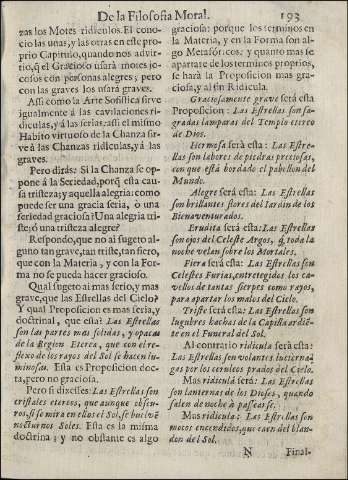 De la Filosofia Moral. 193
zas los Motes ridiculos. El cono-
cio las unas, y las otras en este pro-
prio Capitulo, quando nos advir-
tio, q̃ el Gracioso usarà motes jo-
cosos con personas alegres; pero
con las graves los usarà graves.
Assi como la Arte Sofistica sirve
igualmente à las cavilaciones ri-
diculas, y à las serias; assi el mismo
Habito virtuoso de la Chanza sir-
ve à las Chanzas ridiculas, y à las
graves.
Pero diràs: Si la Chanza se op-
pone à la Seriedad, porq̃ esta cau-
sa tristeza; y aquella alegria: como
puede ser una gracia seria, ò una
seriedad graciosa? Una alegria tris-
te; ò una tristeza alegre?
Respondo, que no ai sugeto al-
guno tan grave, tan triste, tan fiero,
que con la Materia, y con la For-
ma no se pueda hacer gracioso.
Qual sugeto ai mas serio, y mas
grave, que las Estrellas del Cielo?
Y qual Proposicion es mas seria, y
doctrinal, que esta? Las Estrellas
son las partes mas solidas, y opacas
de la Region Eterea, que con el re-
flexo de los rayos del Sol se hacen lu-
minosas. Esta es Proposicion doc-
ta, pero no graciosa.
Pero si dixesses: Las Estrellas son
cristales etereos, que aunque obscu-
ros, si se mira en ellos el Sol, se buelven
nocturnos Soles. Esta es la misma
doctrina; y no obstante es algo
graciosa: porque los terminos en
la Materia, y en la Forma son al-
go Metaforicos: y quanto mas se
apartate de los terminos proprios,
se harà la Proposicion mas gra-
ciosa, y al fin Ridicula.
Graciosamente grave serà esta
Proposicion: Las Estrellas son sa-
gradas lamparas del Templo etereo
de Dios.
Hermosa serà esta: Las Estre-
llas son labores de piedras preciosas,
con que està bordado el pabellon del
Mundo.
Alegre serà esta: Las Estrellas
son brillantes flores del Jardin de los
Bienaventurados.
Erudita serà esta: Las Estrellas
son ojos del Celeste Argos, q̃ toda la
noche velan sobre los Mortales.
Fiera serà esta: Las Estrellas son
Celestes Furias, entretegidos los ca-
vellos de tantas sierpes como rayos,
para apartar los malos del Cielo.
Triste serà esta: Las Estrellas son
lugubres hachas de la Capilla ardiē-
te en el Funeral del Sol.
Al contrario ridicula serà esta:
Las Estrellas son volantes lucierna-
gas por los ceruleos prados del Cielo.
Mas ridicula serà: Las Estrellas
son lanternas de los Dioses, quando
salen de noche à passearse.
Mas ridicula: Las Estrellas son
mocos encendidos, que caen del blan-
don del Sol.
N Final-